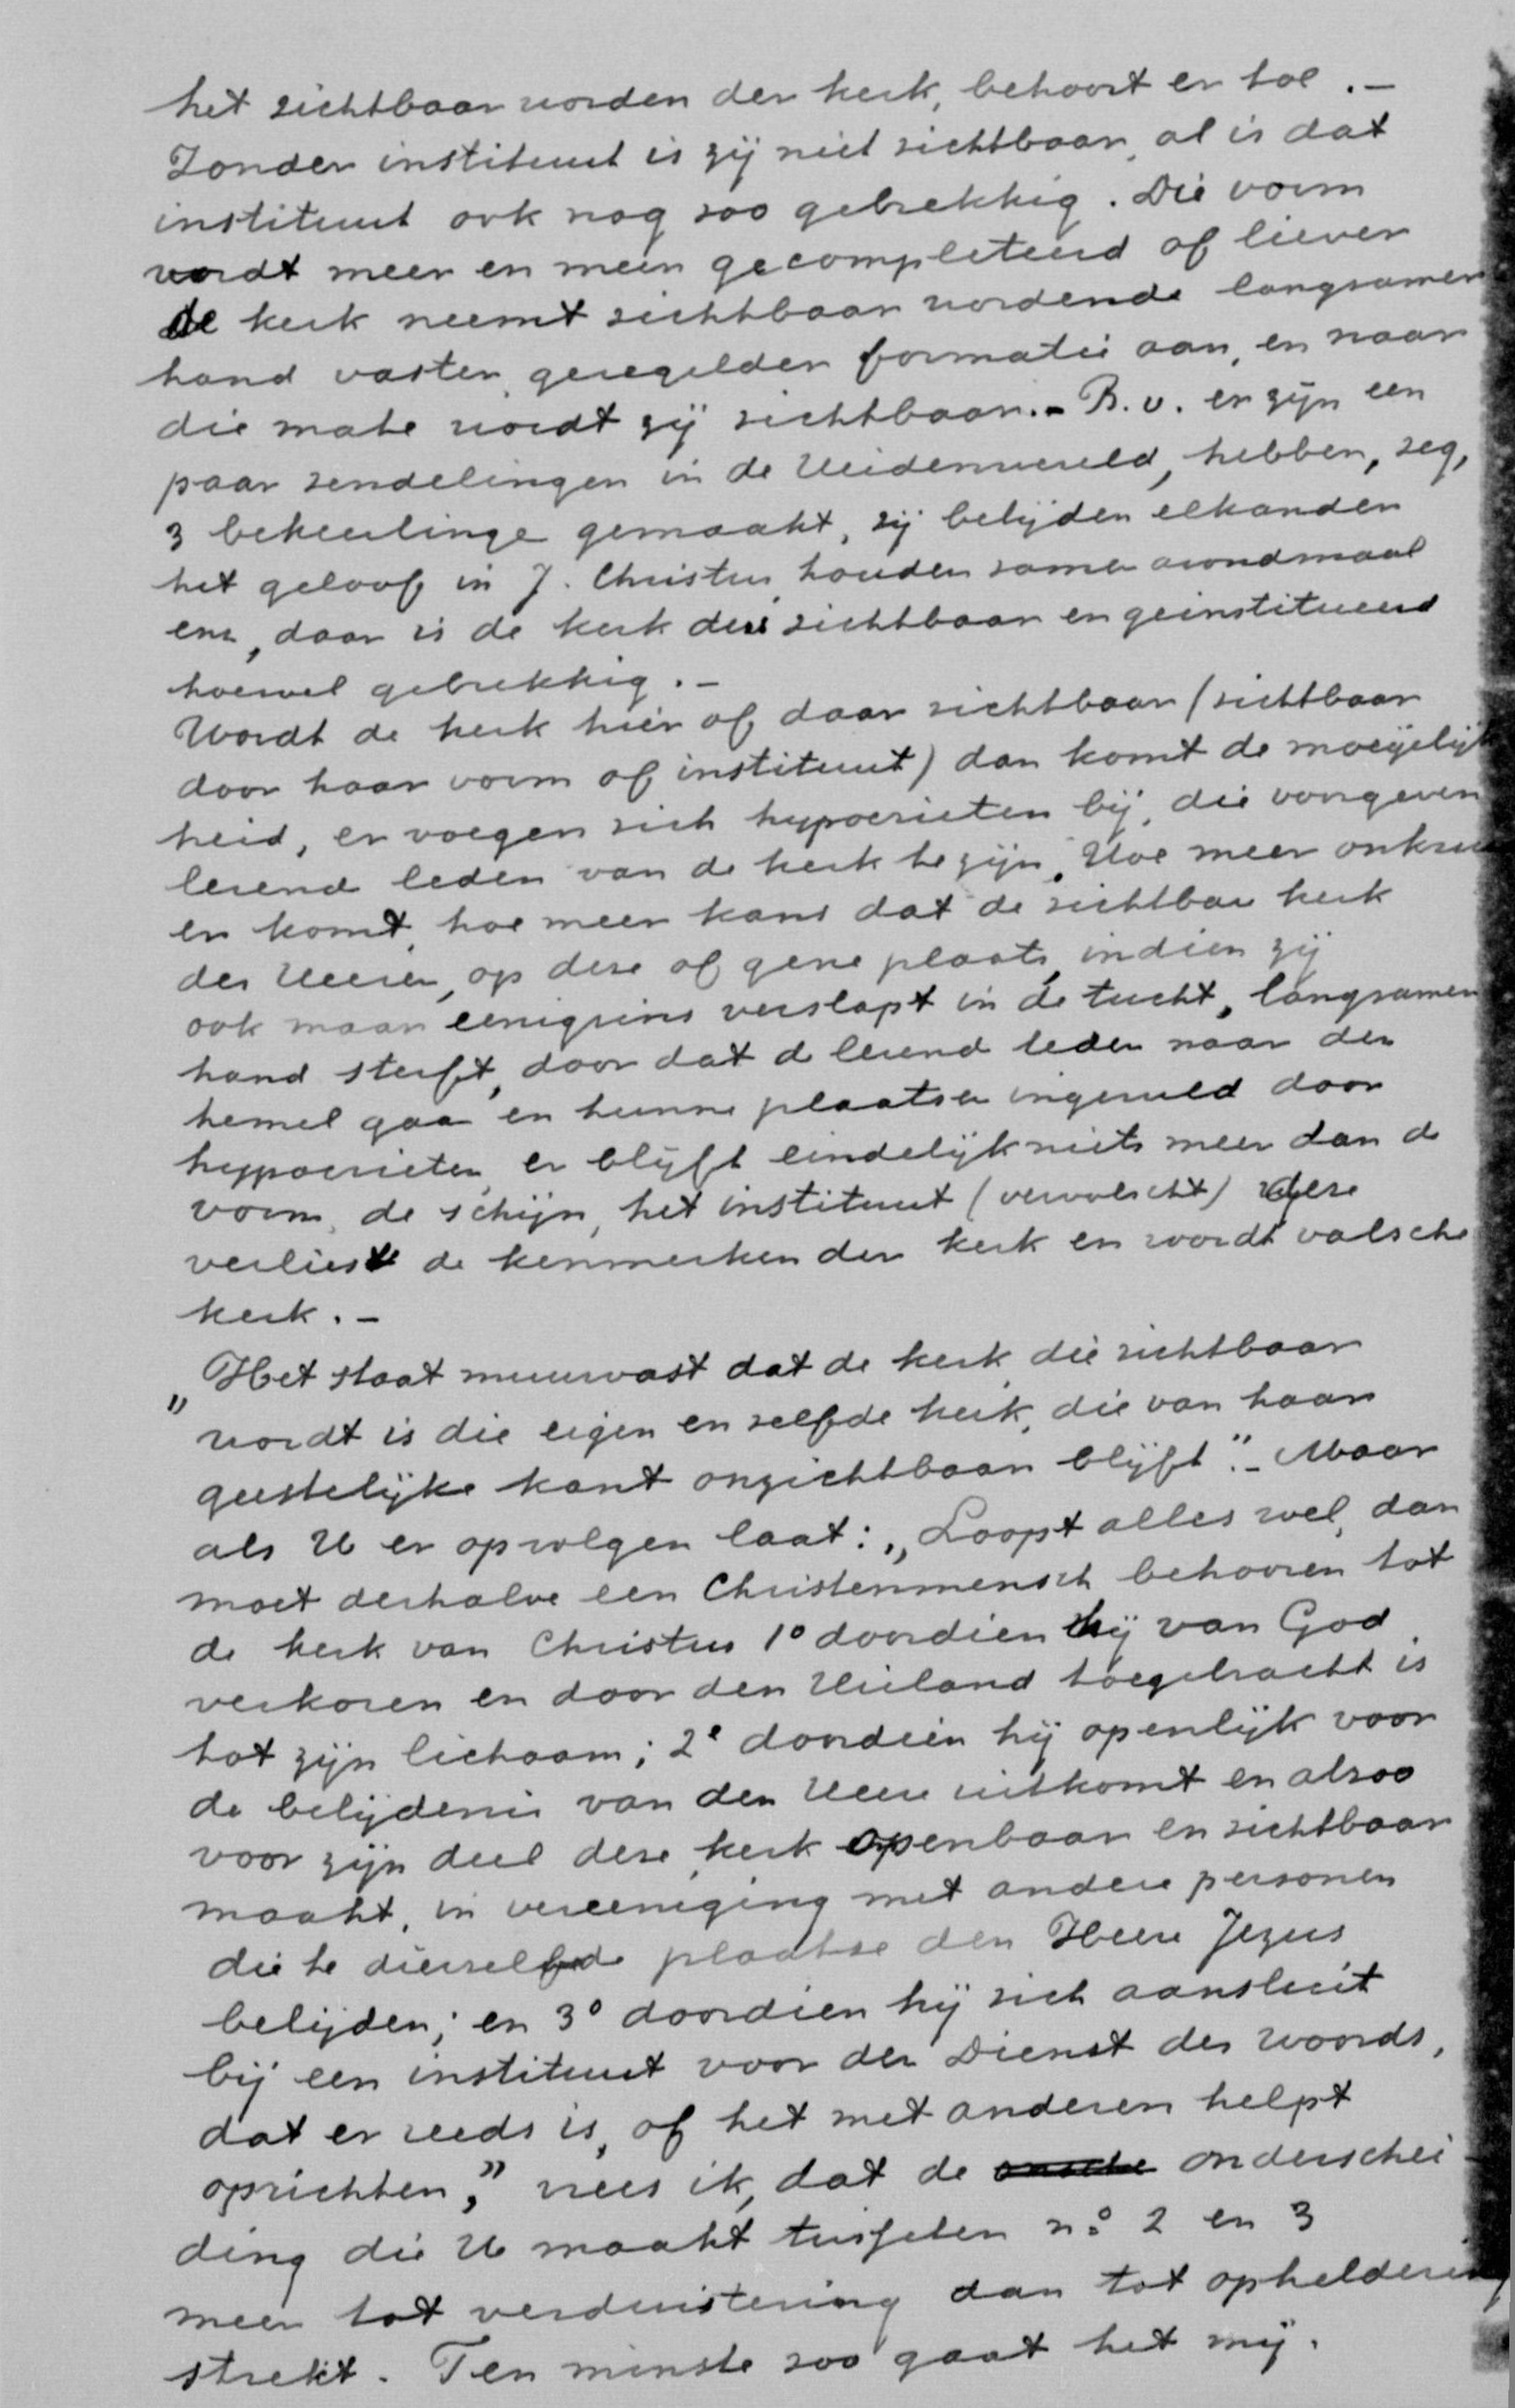 het zichtbaar worden der kerk, behoort er toe . –
Zonder instituut is zij niet zichtbaar, al is dat
instituut ook nog zoo gebrekkig. Die vorm
wordt meer en meer gecompleteerd of liever
de kerk neemt zichtbaar wordende langzamer
hand vaster, geregelder formatie aan, en naar
die mate wordt zij zichtbaar. – B.v. er zijn een
paar zendelingen in de Heidenwereld, hebben, zeg,
3 bekeerlinge gemaakt, zij belijden elkander
het geloof in J. Christus, houden samen avondmaal
enz, daar is de kerk des zichtbaar en geinstitueerd
hoewel gebrekkig. –
Wordt de kerk hier of daar zichtbaar (zichtbaar
door haar vorm of instituut) dan komt de moeijelijk
heid, er voegen zich hypocrieten bij, die voorgeven
levend leden van de kerk te zijn. Hoe meer onkruid
er komt, hoe meer kans dat de zichtbare kerk
des Heeren, op deze of gene plaats, indien zij
ook maar eenigzins verslapt in de tucht, langzamer
hand sterft, door dat de levend leden naar den
hemel gaan en hunne plaatsen ingeruild door
hypocrieten, er blijft eindelijk niets meer dan de
vorm, de schijn, het instituut (vervalscht) deze
verliest de kenmerken der kerk en wordt valsche
kerk. –
„ Het staat muurvast dat de kerk die zichtbaar
wordt is die eigen en zelfde kerk, die van haar
geestelijke kant onzichtbaar blijft". – Maar
als U er op volgen laat: „Loopt alles wel, dan
moet derhalve een Christenmensch behooren tot
de kerk van Christus 1° doordien hij van God
verkoren en door den Heiland toegebracht is
tot zijn lichaam; 2° doordien hij openlijk voor
de belijdenis van den Heere uitkomt en alzoo
voor zijn deel deze kerk openbaar en zichtbaar
maakt, in vereeniging met andere personen
die te dierzelfde plaatse den Heere Jezus
belijden; en 3° doordien hij zich aansluit
bij een instituut voor den Dienst des Woords,
dat er reeds is, of het met anderen helpt
oprichten," vrees ik, dat de onderschei-
ding die U maakt tusschen n.° 2 en 3
meer tot verduistering dan tot opheldering
strekt. Ten minste zoo gaat het mij.